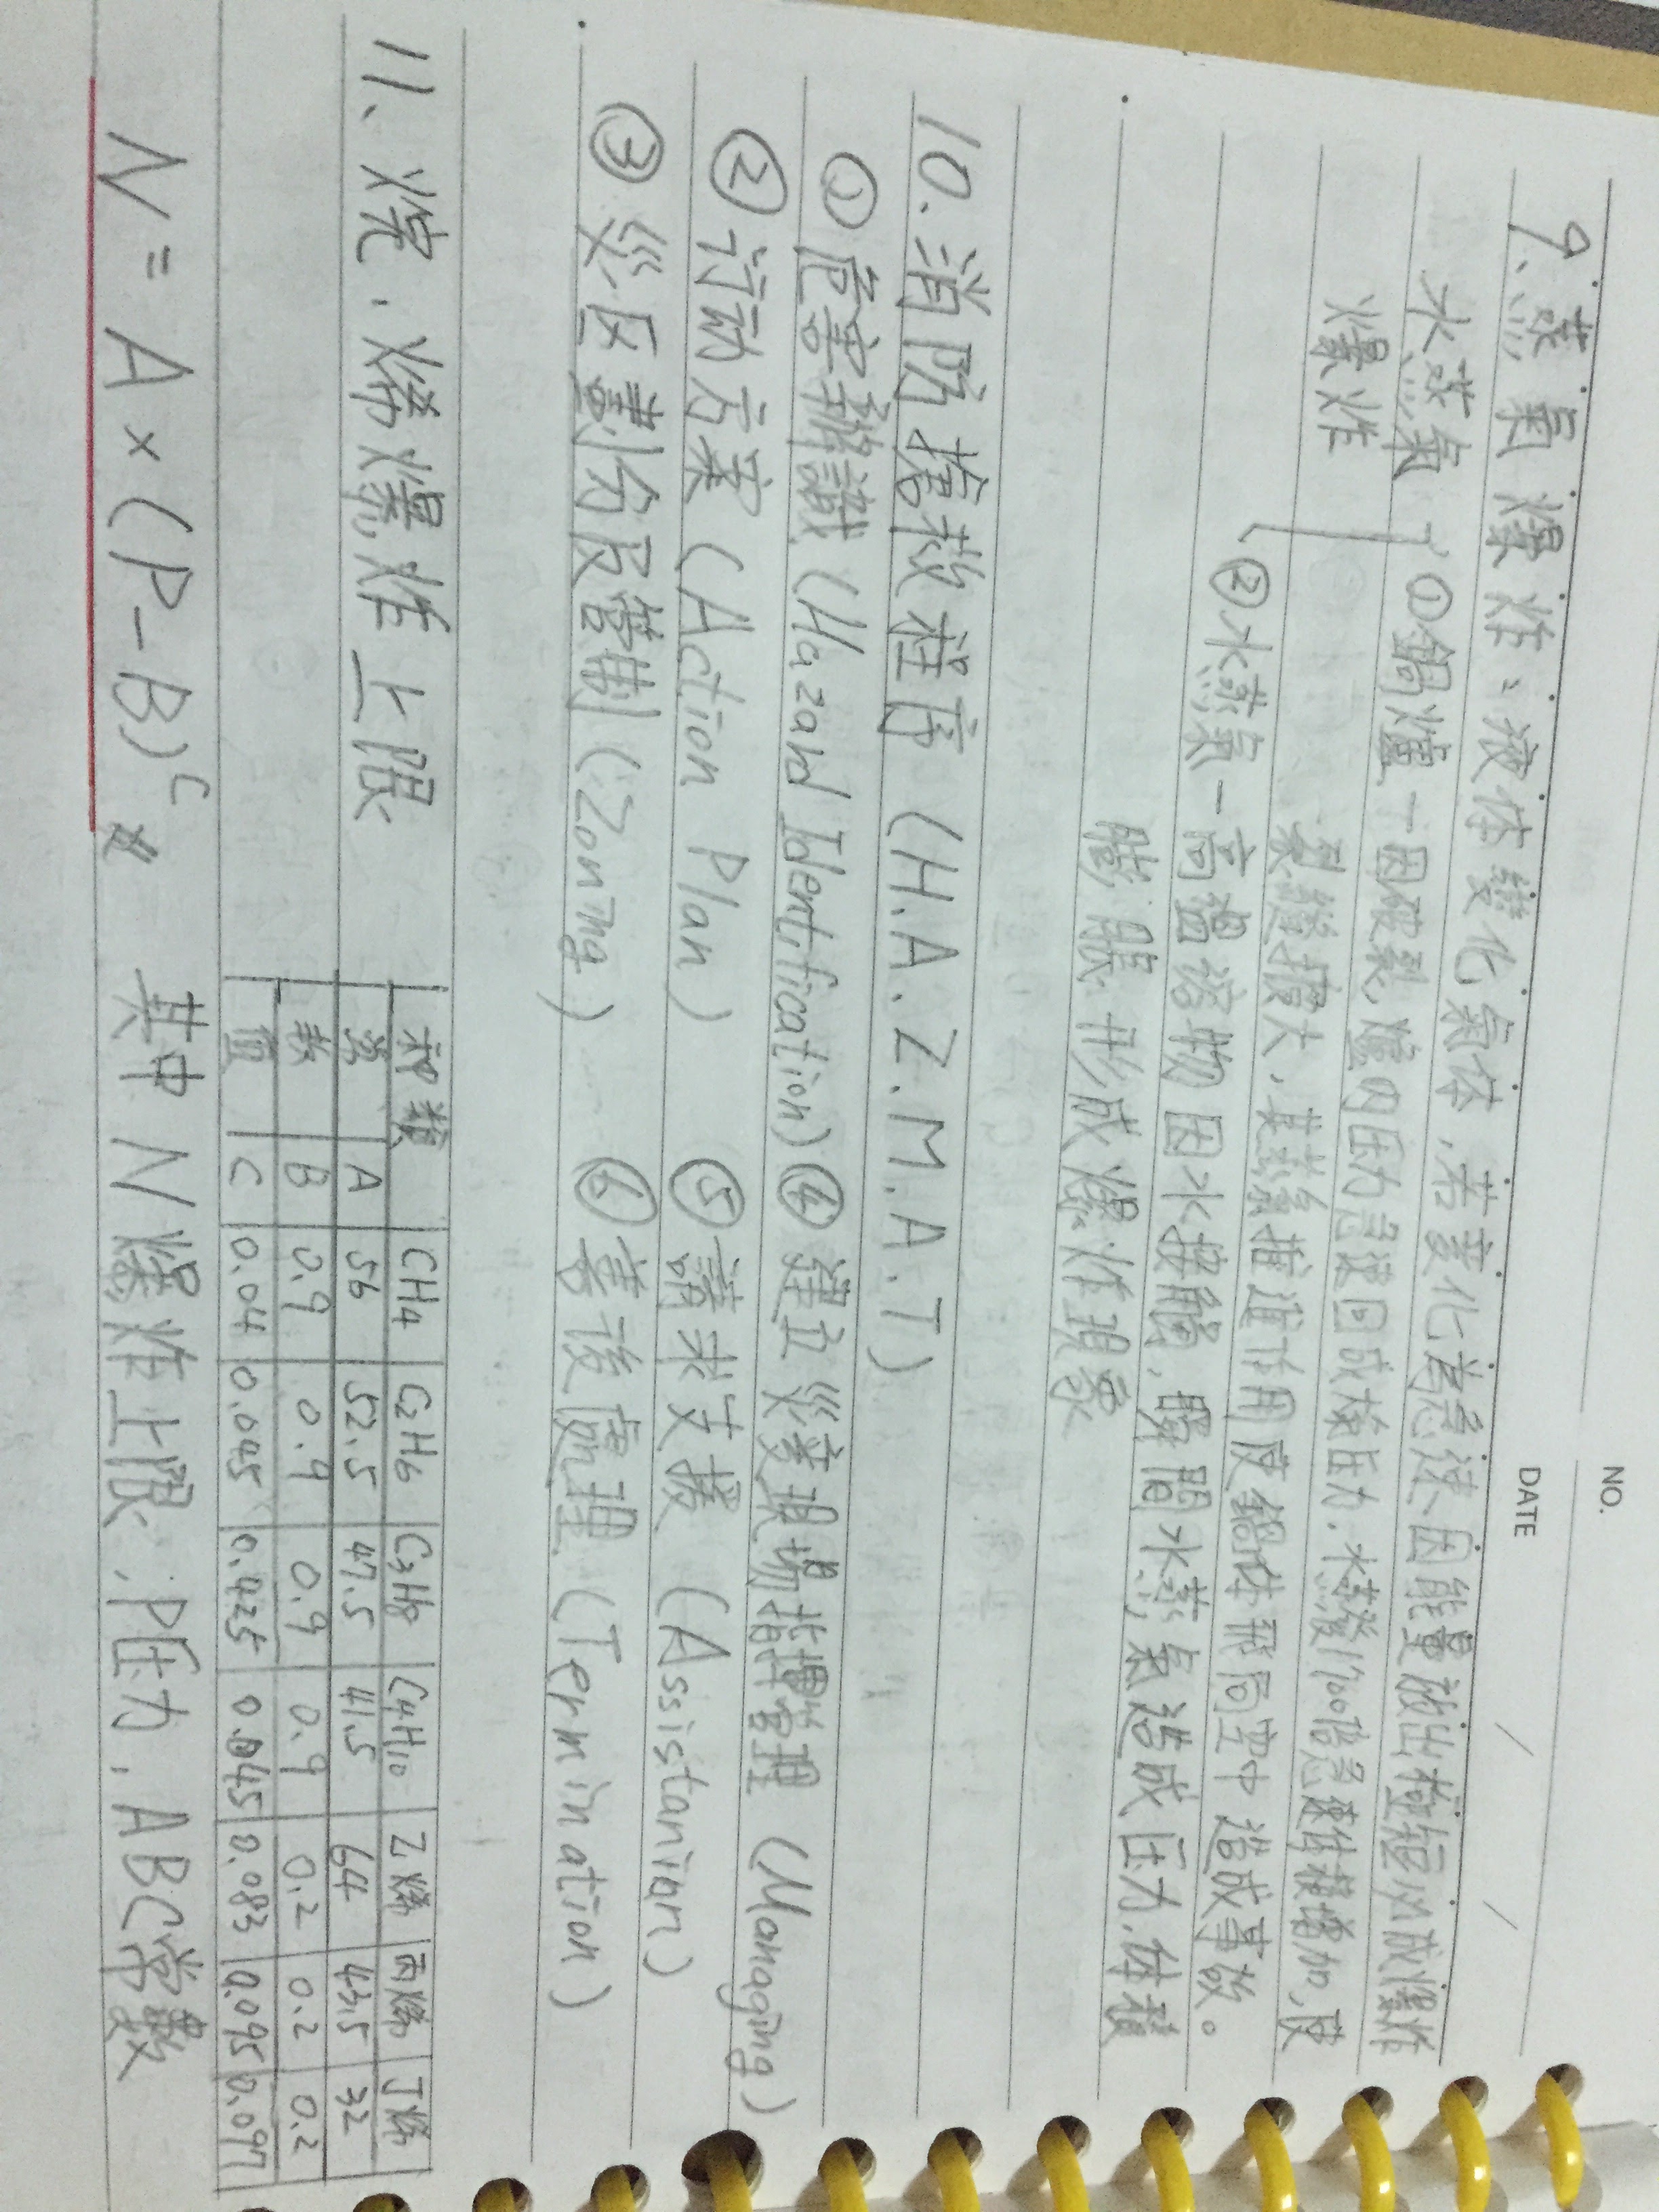 NO.
DATE / /
9、蒸氣爆炸:液体變化氣体,若變化為急速、因能量放出極短以成爆炸
水蒸氣 ①鍋爐-因破裂、爐內压力急速回成積压力.水蒸發1700倍急速体積增加,使
爆炸 裂縫擴大,其蒸氣推進作用使鍋体飛向空中造成事故。
②水蒸氣-高溫熔物因水接觸,瞬間水蒸氣造成压力.体積
膨脹形成爆炸現象
10.消防搶救程序(H.A.Z.M.A.T)
①危害辨識(Hazahd Identification) ④建立災變現場指揮管理(Managing)
②行动方案(Action Plan) ⑤請求支援(Assistanian)
③災区劃分及管制(Zoning) ⑥善後處理(Termination)
11、烷.烯爆炸上限
種類 CH4 C2H6 C3H8 C4H10 乙烯 丙烯 丁烯
常 A 56 52.5 47.5 41.5 64 43.5 32
數 B 0.9 0.9 0.9 0.9 0.2 0.2 0.2
值 C 0.04 0.045 0.425 0.045 0.083 0.095 0.097
N = A × (P-B)C 其中N爆炸上限;P压力,ABC常數